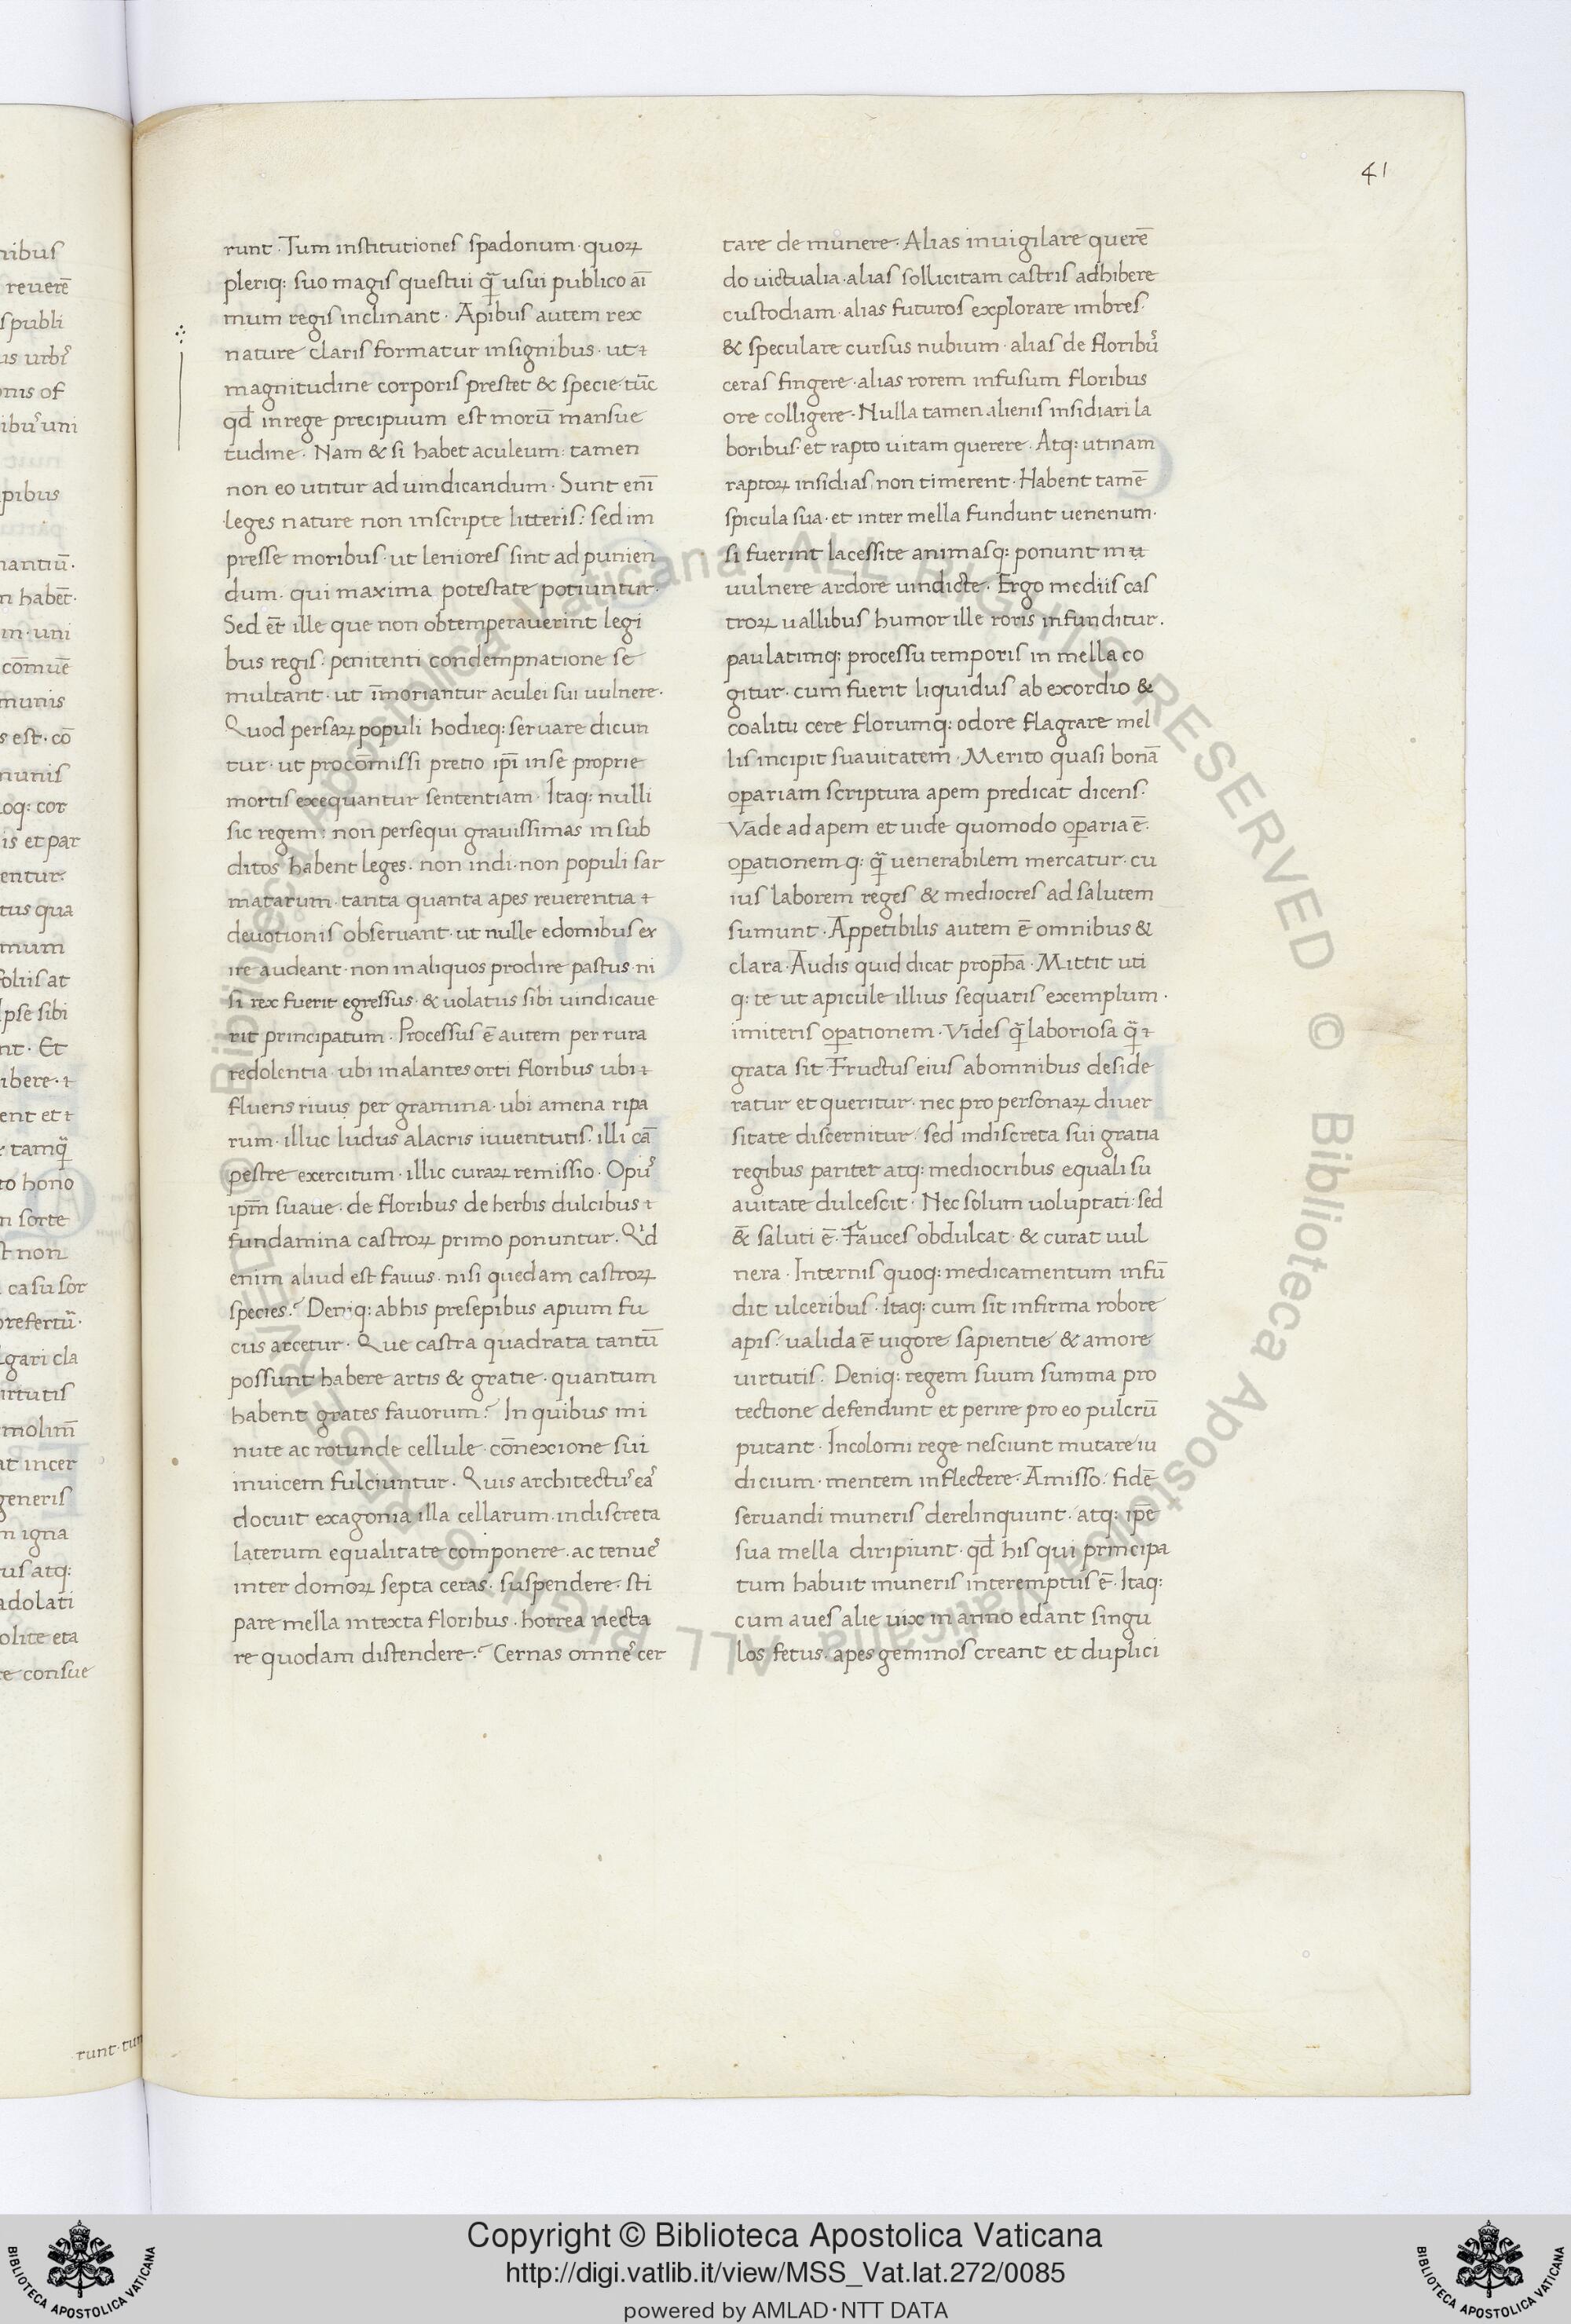 41
runt · Tum institutiones spadonum · quoꝝ
pleriq: suo magis questui q̃ usui publico ai̅
mum regis inclinant · Apibus autem rex
nature claris formatur insignibus · ut ⁊
magnitudine corporis prestet & specie · tu̅c
qđ in rege precipuum est moru̅ mansue
tudine · Nam & si habet aculeum · tamen
non eo utitur ad uindicandum · Sunt eni̅
leges nature non inscripte litteris · sed im
presse moribus · ut leniores sint ad punien
dum · qui maxima potestate potiuntur ·
Sed et̅ ille que non obtemperauerint legi
bus regis · penitenti condempnatione se
multant · ut i̅moriantur aculei sui uulnere ·
Quod persaꝝ populi hodieq: seruare dicun
tur · ut pro co̅missi pretio ip̅i in se proprie
mortis exequantur sententiam · Itaq: nulli
sic regem · non persequi grauissimas in sub
ditos habent leges · non indi · non populi sar
matarum · tanta quanta apes reuerentia ⁊
deuotionis obseruant · ut nulle e domibus ex
ire audeant · non in aliquos prodire pastus · ni
si rex fuerit egressus · & uolatus sibi uindicaue
rit principatum · Processus e̅ autem per rura
redolentia · ubi inalantes orti floribus ubi ⁊
fluens riuus per gramina · ubi amena ripa
rum · illuc ludus alacris iuuentutis · illi ca̅
pestre exercitum · illic curaꝝ remissio · Opus
ipm̅ suaue · de floribus de herbis dulcibus ⁊
fundamina castroꝝ primo ponuntur · Qid
enim aliud est fauus · nisi quedam castroꝝ
species? Deniq: ab his presepibus apium fu
cus arcetur · Que castra quadrata tantu̅
possunt habere artis & gratie · quantum
habent grates fauorum? In quibus mi
nute ac rotunde cellule · co̅nexione sui
inuicem fulciuntur · Quis architectus eas
docuit exagonia illa cellarum · indiscreta
laterum equalitate componere · ac tenues
inter domoꝝ septa ceras · suspendere · sti
pare mella intexta floribus · horrea necta
re quodam distendere? Cernas omnes cer
tare de munere · Alias inuigilare quere̅
do uictualia · alias sollicitam castris adhibere
custodiam · alias futuros explorare imbres ·
& speculare cursus nubium · alias de floribus
ceras fingere · alias rorem infusum floribus
ore colligere · Nulla tamen alienis insidiari la
boribus · et rapto uitam querere · Atq: utinam
raptoꝝ insidias non timerent · Habent tame̅
spicula sua · et inter mella fundunt uenenum ·
si fuerint lacessite animasq: ponunt in
uulnere ardore uindicte · Ergo mediis cas
troꝝ uallibus humor ille roris infunditur ·
paulatimq: processu temporis in mella co
gitur · cum fuerit liquidus ab exordio &
coalitu cere florumq: odore flagrare mel
lis incipit suauitatem · Merito quasi bona̅
oꝑariam scriptura apem predicat dicens ·
Vade ad apem et uide quomodo oꝑaria e̅ ·
oꝑationem q: q̃ uenerabilem mercatur · cu
ius laborem reges & mediocres ad salutem
sumunt · Appetibilis autem e̅ omnibus &
clara · Audis quid dicat proph̅a · Mittit uti
q: te ut apicule illius sequaris exemplum ·
imiteris oꝑationem · Vides q̃ laboriosa q̃ ⁊
grata sit · Fructus eius ab omnibus deside
ratur et queritur · nec pro personaꝝ diuer
sitate discernitur · sed indiscreta sui gratia
regibus pariter atq: mediocribus equali su
auitate dulcescit · Nec solum uoluptati · sed
&̅ saluti e̅ · Fauces obdulcat · & curat uul
nera · Internis quoq: medicamentum infu̅
dit ulceribus · Itaq: cum sit infirma robore
apis · ualida e̅ uigore sapientie & amore
uirtutis · Deniq: regem suum summa pro
tectione defendunt et perire pro eo pulcru̅
putant · Incolomi rege nesciunt mutare iu
dicium · mentem inflectere · Amisso · fide̅
seruandi muneris derelinquunt · atq: ip̅e
sua mella diripiunt · qđ his qui principa
tum habuit muneris interemptus e̅ · Itaq:
cum aues alie uix in anno edant singu
los fetus · apes geminos creant et duplici
nibus
reuere̅
spubli
us urbis
onis of
ibus uni
pibus
nantiu̅ ·
n habet̅ ·
in · uni
co̅mue̅
munis
s est · co̅
munis
oq: cor
is et par
entur
tus qua
mum
foliis at
ipse sibi
nt · Et
ibere · ⁊
ent et ⁊
tamq̃
to hono
n sorte
t non
casu sor
prefertur ·
lgari cla
irtutis
molim̅
at incer
generis
n igna
us atq:
adolati
olite eta
te consue
runt · tum
© Biblioteca Apostolica Vaticana ALL RIGHTS RESERVED © Biblioteca Apostolica Vaticana ALL RIGHTS RESERVED
Copyright © Biblioteca Apostolica Vaticana
http://digi.vatlib.it/view/MSS_Vat.lat.272/0085
powered by AMLAD·NTT DATA
BIBLIOTECA APOSTOLICA VATICANA
BIBLIOTECA APOSTOLICA VATICANA